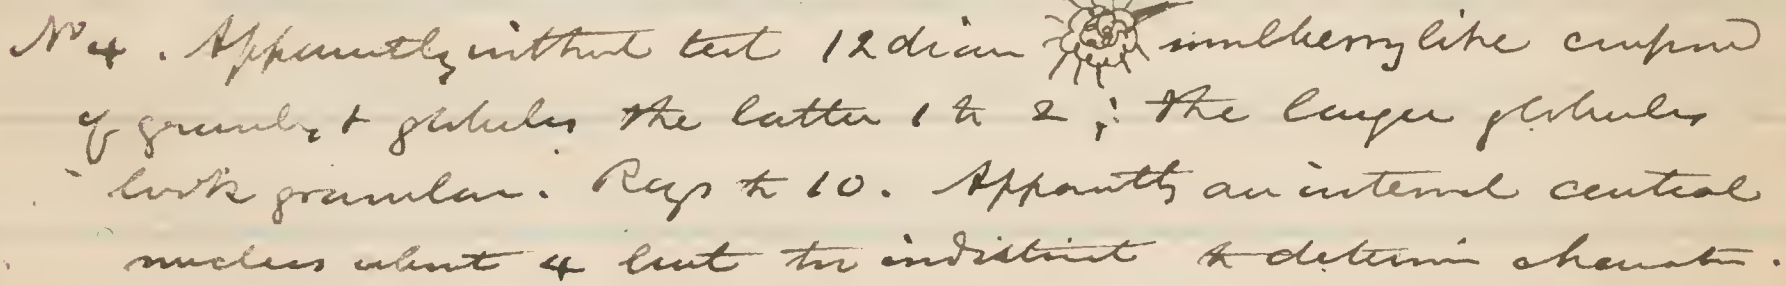 No 4. Apparently without test 12 diam mulberry like compos
of granules & globules the latter 1 to 2; the larger globules
look granular. Rays to 10. Apparently an internal central
nucleus about 4 but too indistinct to determin character.